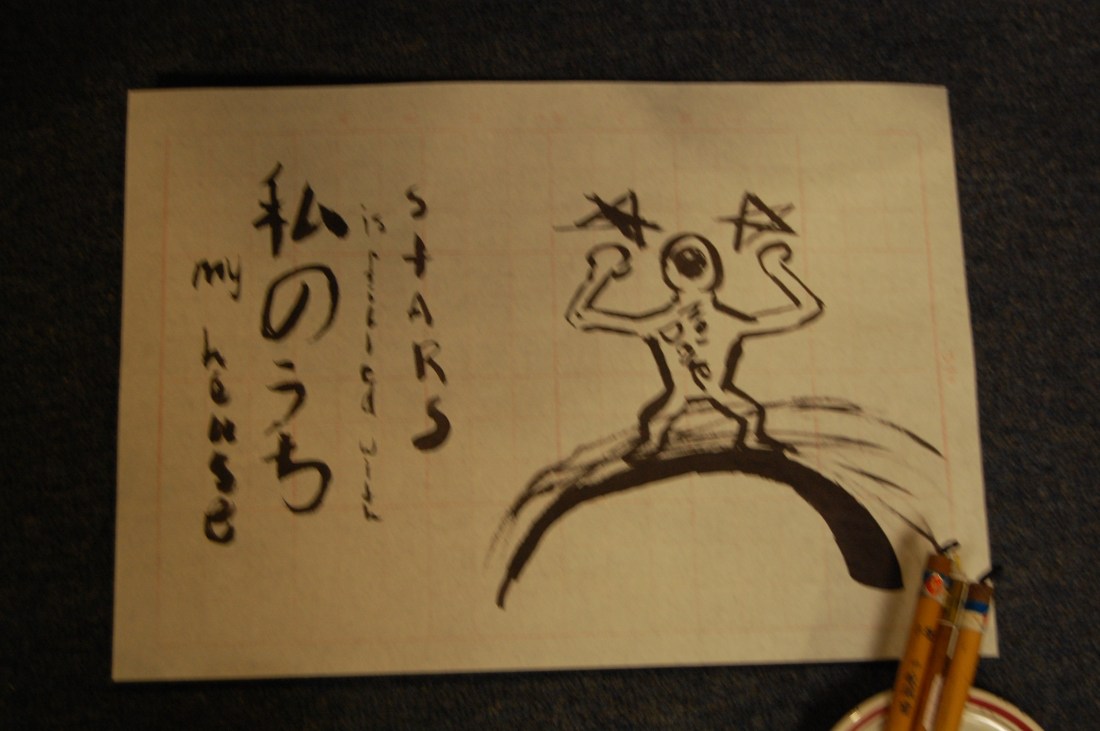 my house
私のうち
is painted with
stARS